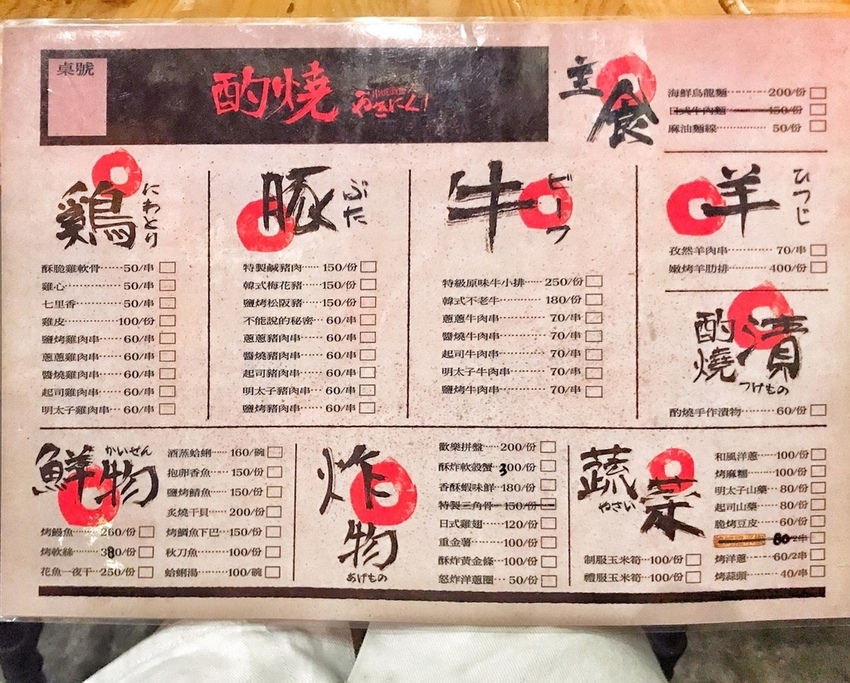 桌號
酌燒
やきにく!
主食
海鮮烏龍麵 200/份
日式牛肉麵 150/份
麻油麵線 50/份
鶏 にわとり
酥脆雞軟骨 50/串
雞心 50/串
七里香 50/串
雞皮 100/份
鹽烤雞肉串 60/串
蔥蔥雞肉串 60/串
醬燒雞肉串 60/串
起司雞肉串 60/串
明太子雞肉串 60/串
豚 ぶた
特製鹹豬肉 150/份
韓式梅花豬 150/份
鹽烤松阪豬 150/份
不能說的秘密 60/串
蔥蔥豬肉串 60/串
醬燒豬肉串 60/串
起司豬肉串 60/串
明太子豬肉串 60/串
鹽烤豬肉串 60/串
牛 ビーフ
特級原味牛小排 250/份
韓式不老牛 180/份
蔥蔥牛肉串 70/串
醬燒牛肉串 70/串
起司牛肉串 70/串
明太子牛肉串 70/串
鹽烤牛肉串 70/串
羊 ひつじ
孜然羊肉串 70/串
嫩烤羊肋排 400/份
酌燒漬 つけもの
酌燒手作漬物 60/份
鮮物 かいせん
酒蒸蛤蜊 160/碗
抱卵香魚 150/份
鹽烤鯖魚 150/份
炙燒干貝 200/份
烤鰻魚 260/份
烤鯛魚下巴 150/份
烤軟絲 380/份
秋刀魚 100/份
花魚一夜干 250/份
蛤蜊湯 100/碗
炸物 あげもの
歡樂拼盤 200/份
酥炸軟殼蟹 300/份
香酥蝦味鮮 180/份
特製三角骨 150/份
日式雞翅 120/份
重金薯 100/份
酥炸黃金條 100/份
怒炸洋蔥圈 50/份
蔬菜 やさい
和風洋蔥 100/份
烤麻糬 100/份
明太子山藥 80/份
起司山藥 80/份
脆烤豆皮 60/份
80/2串
制服玉米筍 100/份
烤洋蔥 60/2串
禮服玉米筍 100/份
烤蒜頭 40/串